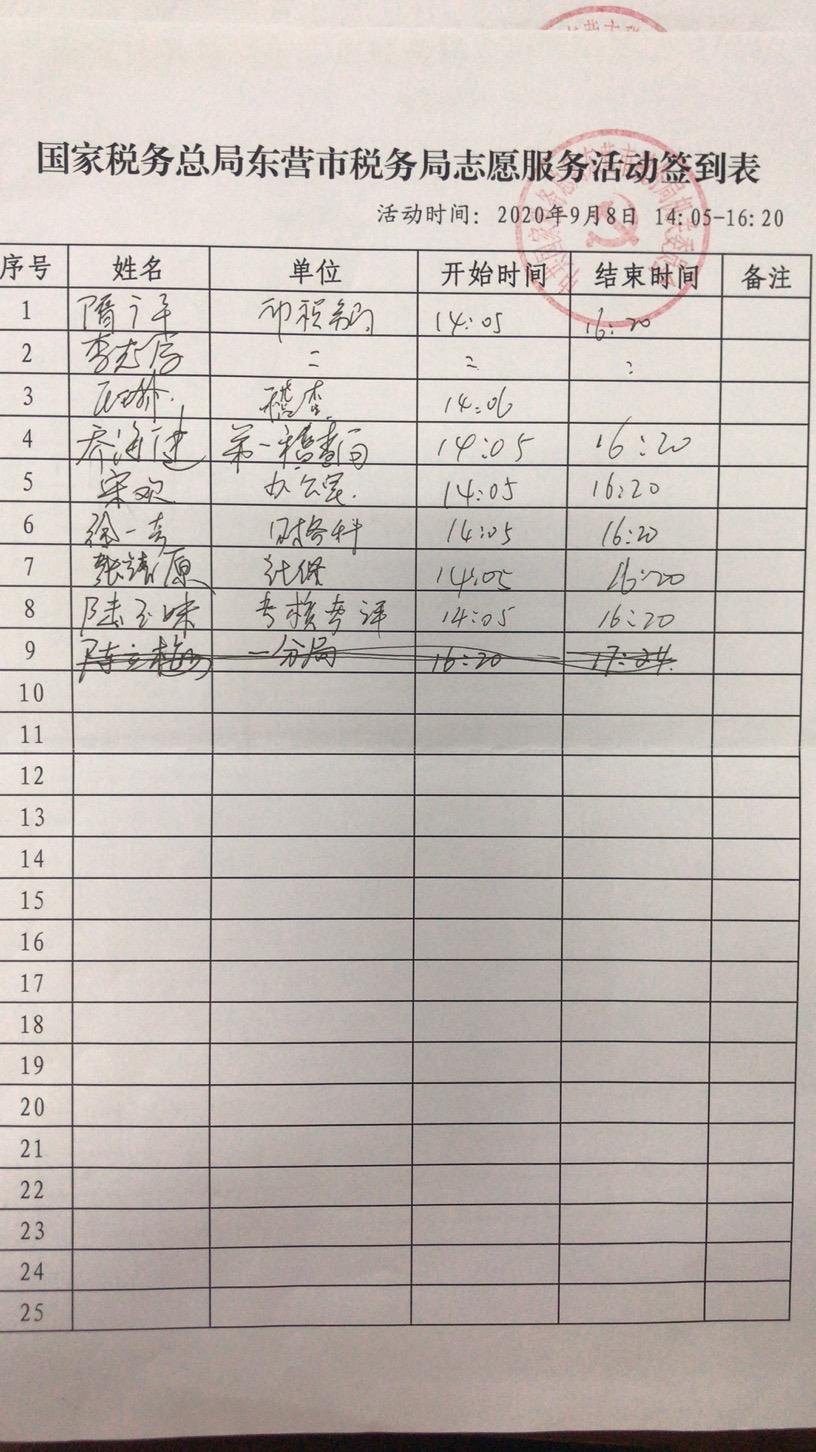 国家税务总局东营市税务局志愿服务活动签到表
活动时间: 2020年9月8日 14:05-16:20
序号 姓名 单位 开始时间 结束时间 备注
1 隋 14:05 16:20
2 李志 = = :
3 稽查 14:06
4 乔海建 第一稽查局 14:05 16:20
5 宋欢 办公室 14:05 16:20
6 徐一 财务科 14:05 16:20
7 张靖原 14:05 16:20
8 陆玉 考核考评 14:05 16:20
9 陈立梅 一分局 16:20 17:24
10
11
12
13
14
15
16
17
18
19
20
21
22
23
24
25